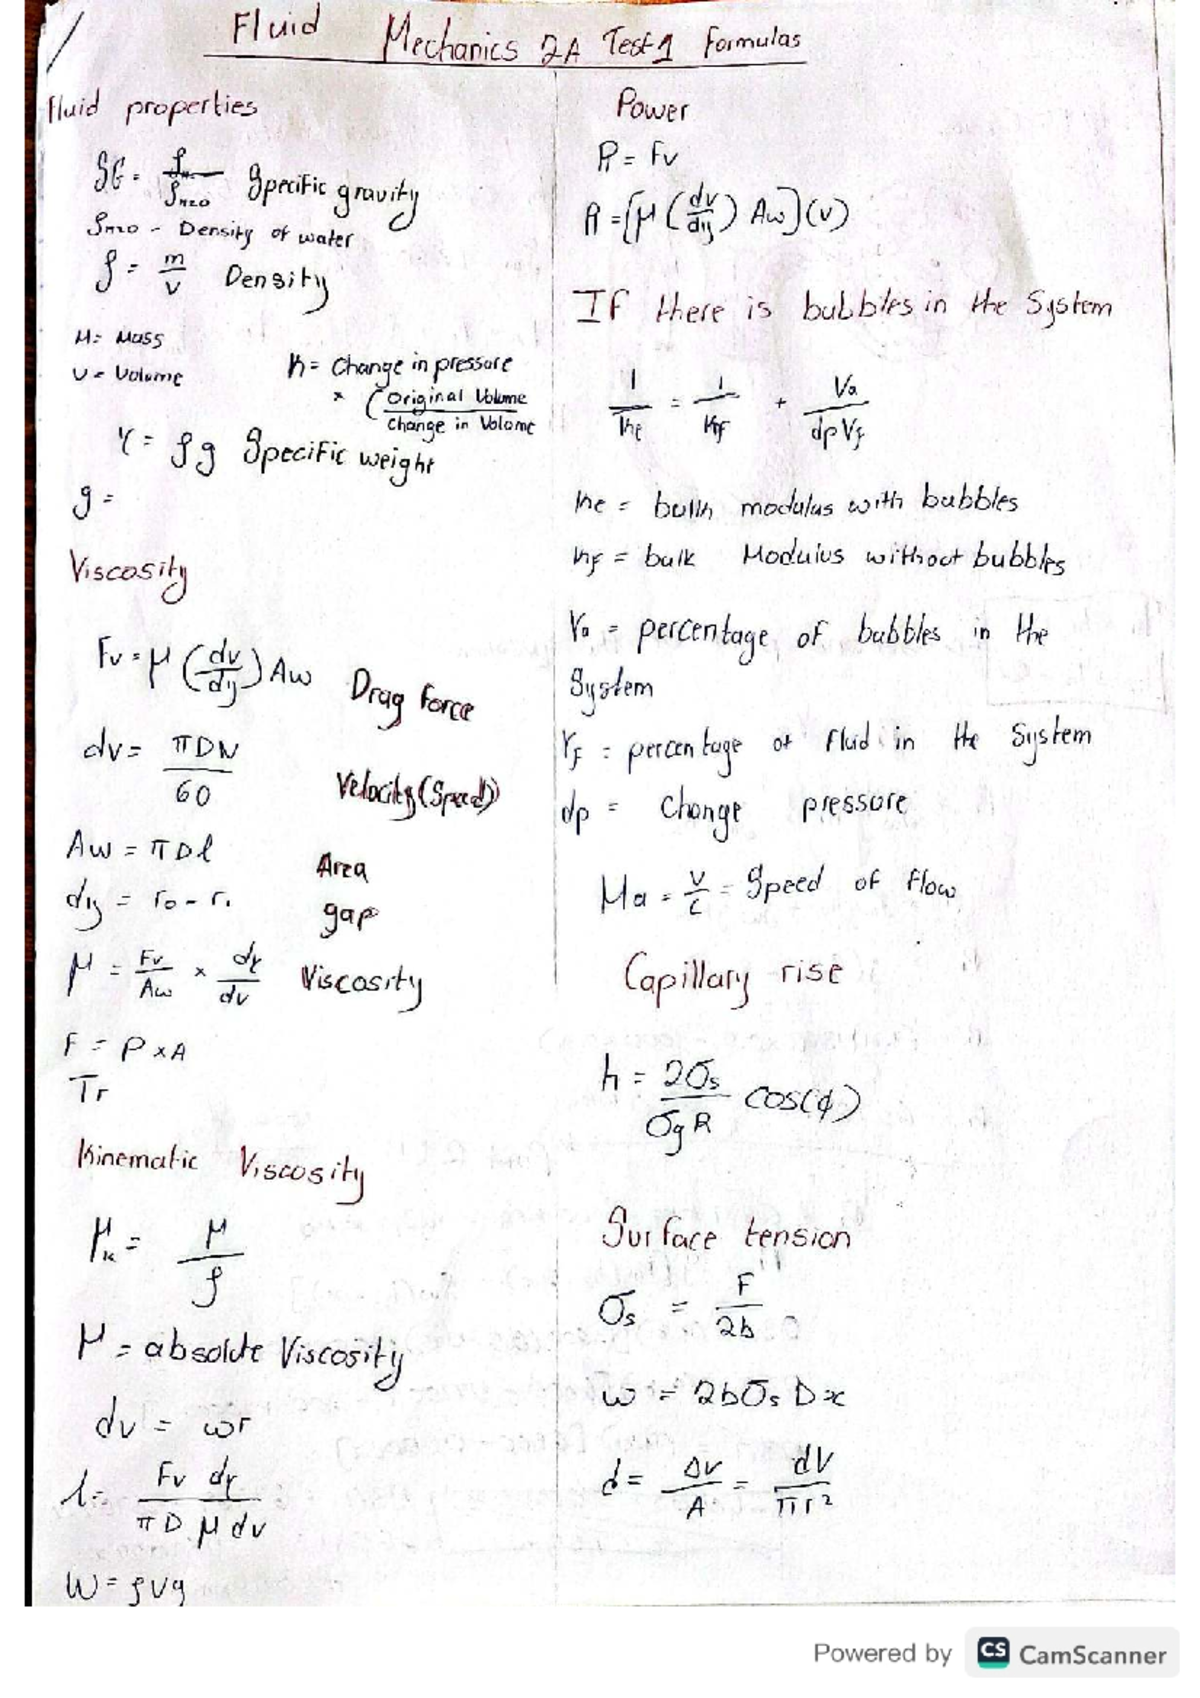 Fluid Mechanics 2A Test 1 Formulas
Fluid properties
SG = ρ/ρH2O Specific gravity
ρH2O - Density of water
ρ = m/v Density
M = Mass
V = Volume
K = Change in pressure
× (Original Volume / Change in Volume
γ = ρg Specific weight
g =
Viscosity
Fv = μ (dv/dy) Aw Drag Force
dv = πDN/60 Velocity (Speed)
Aw = πDl Area
dy = ro - ri gap
μ = Fv/Aw × dy/dv Viscosity
F = P × A
Tr
Kinematic Viscosity
μk = μ/ρ
μ = absolute Viscosity
dv = ωr
l = Fv dy / πD μ dv
W = ρVg
Power
P = Fv
P = [μ (dv/dy) Aw] (v)
If there is bubbles in the System
1/Ke = 1/Kf + Va/dpVf
Ke = bulk modulus with bubbles
Kf = bulk Modulus without bubbles
Va = percentage of bubbles in the
System
Vf = percentage of fluid in the System
dp = change pressure
Ma = V/C = Speed of flow
Capillary rise
h = 2σs/σgR cos(φ)
Surface tension
σs = F/2b
w = 2bσs Dx
d = Δv/A = dV/πr²
Powered by CS CamScanner